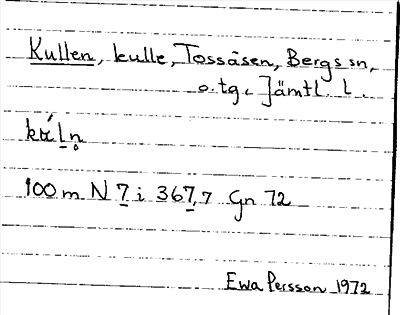 Kullen, kulle, Tossåsen, Bergs sn,
o.tg. Jämtl. l.
100 m N 7 i 367,7 Gn 72
Ewa Persson 1972